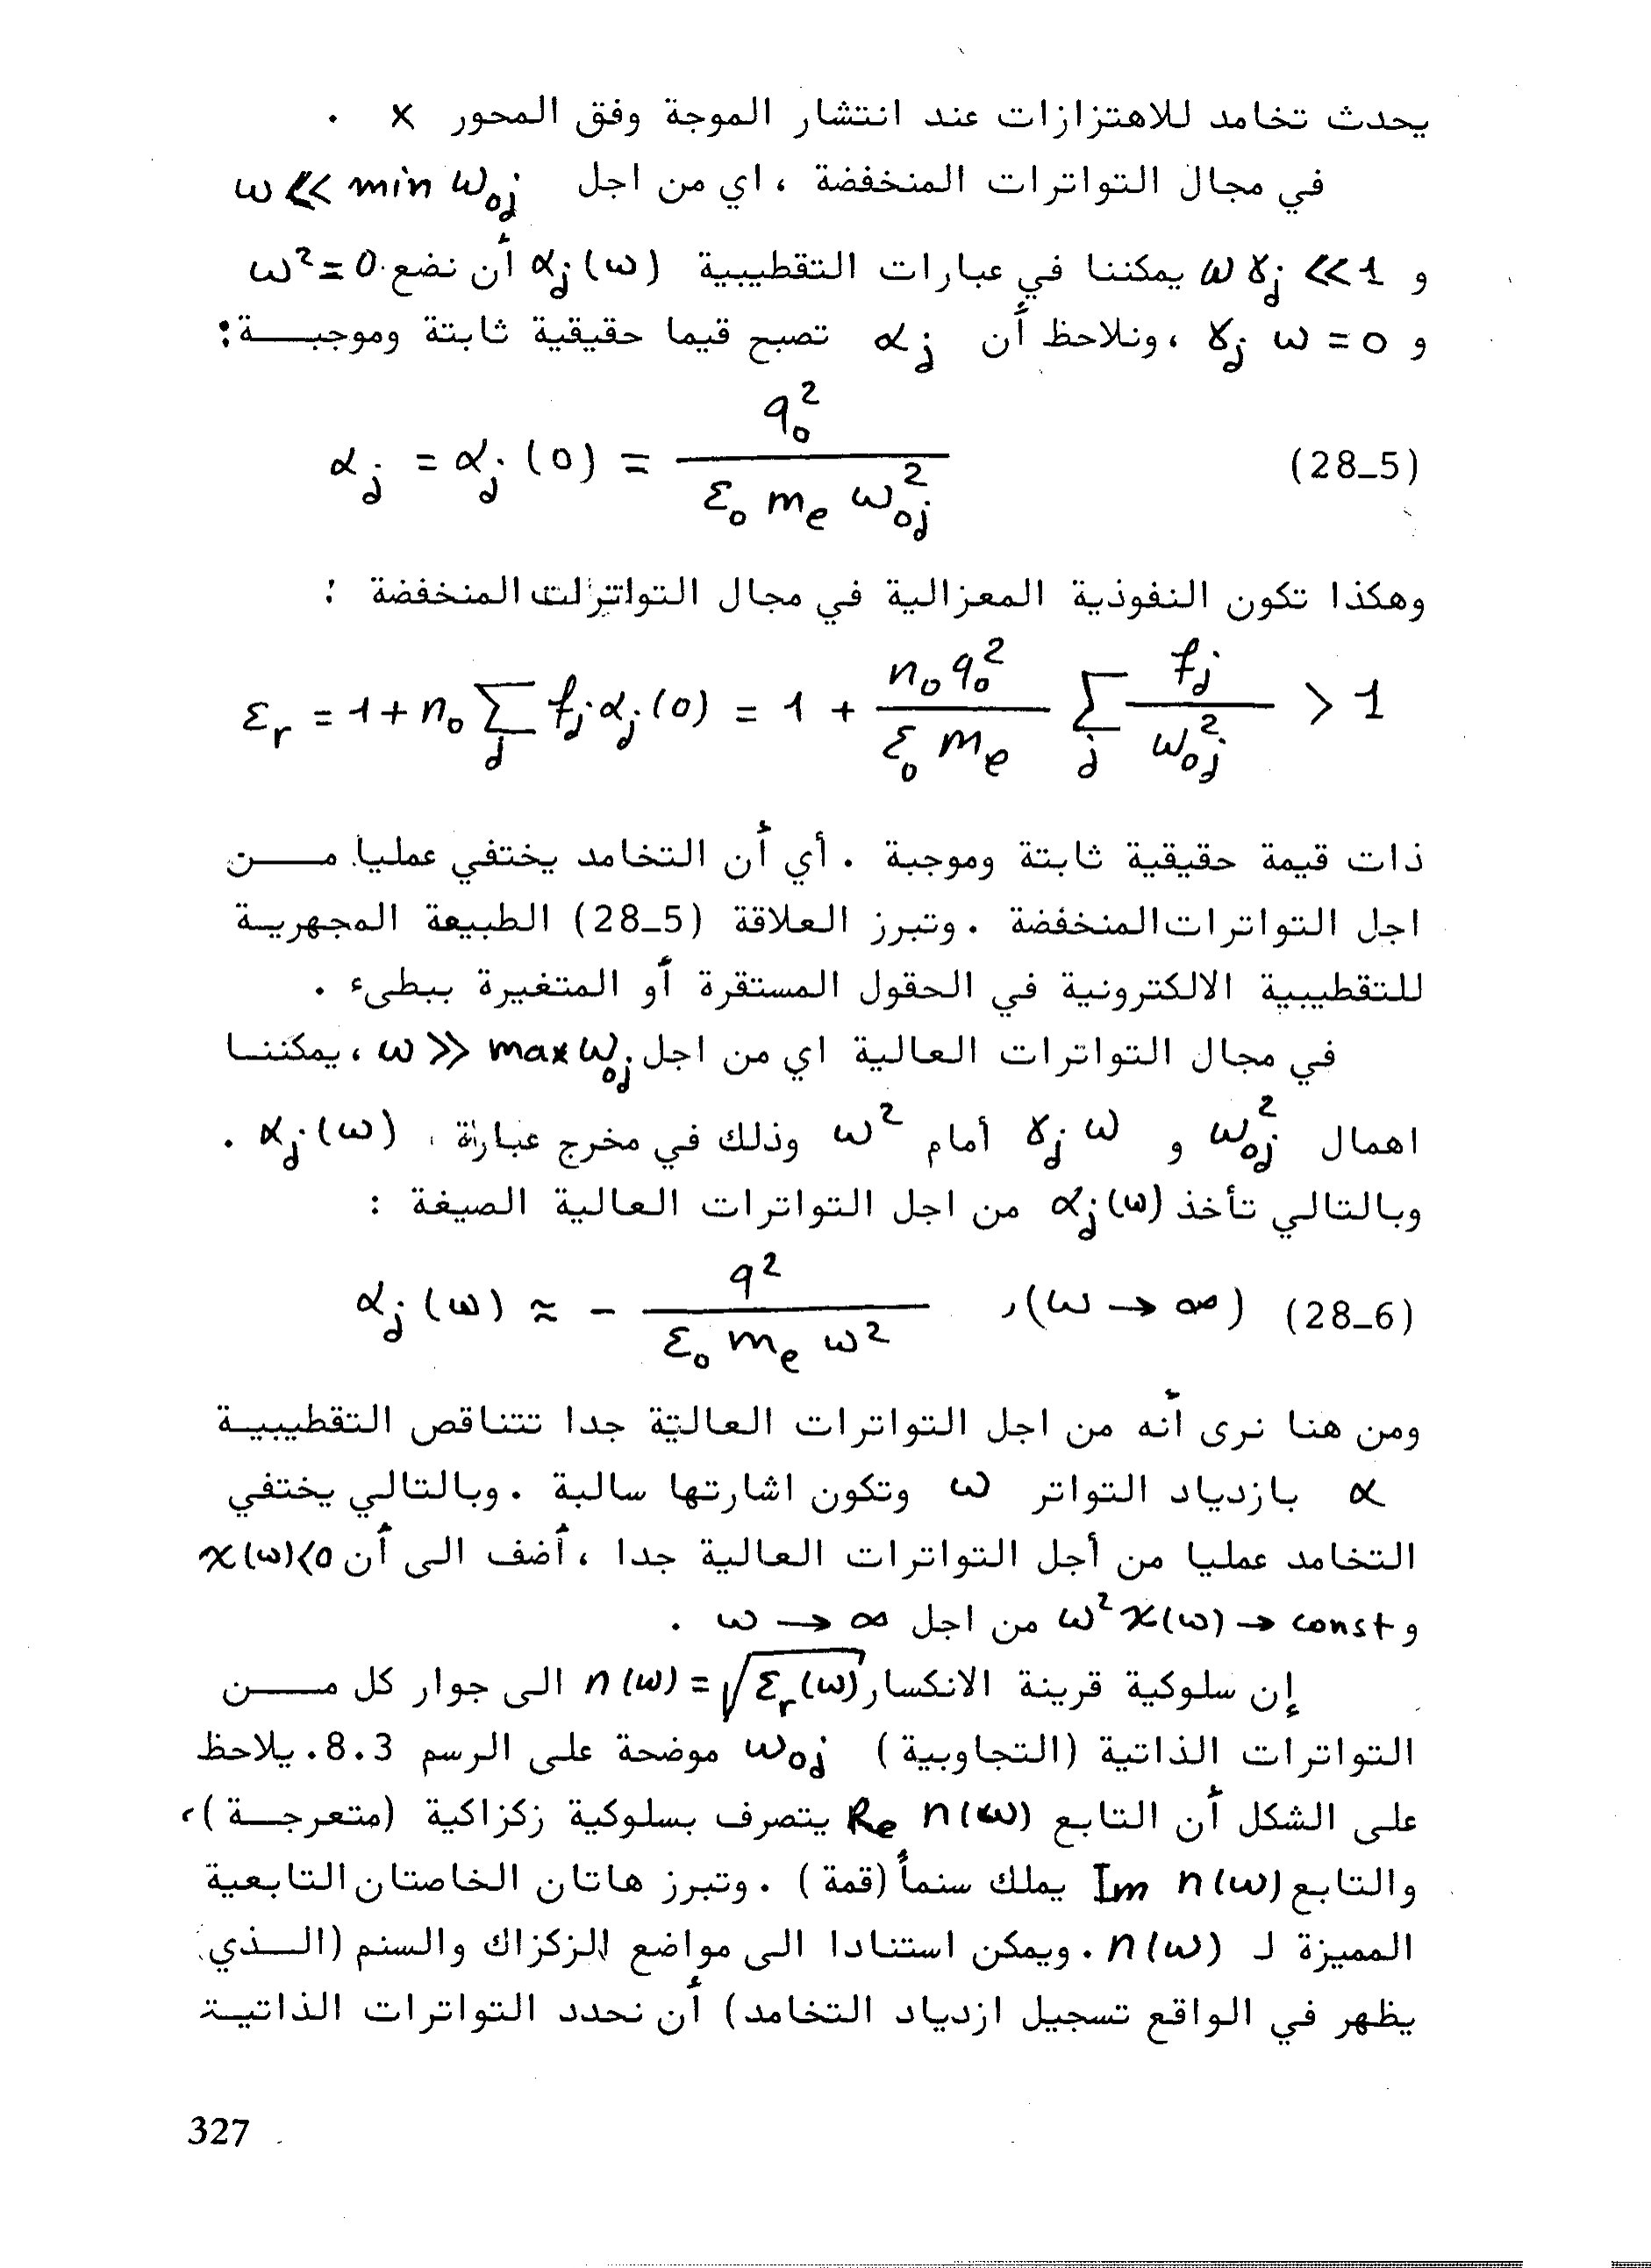 يحدث تخامد للاهتزازات عند انتشار الموجة وفق المحور x .
في مجال التواترات المنخفضة ، اي من اجل ω ≪ min ω₀ⱼ
و ω γⱼ ≪ 1 يمكننا في عبارات التقطيبية αⱼ(ω) أن نضع ω² = 0
و γⱼ ω = 0 ، ونلاحظ أن αⱼ تصبح قيما حقيقية ثابتة وموجبـــة :
αⱼ = αⱼ(0) = q₀² / (ε₀ mₑ ω₀ⱼ²) (28_5)
وهكذا تكون النفوذية المعزالية في مجال التواترات المنخفضة :
εᵣ = 1 + n₀ Σⱼ fⱼ αⱼ(0) = 1 + (n₀ q₀² / ε₀ mₑ) Σⱼ fⱼ / ω₀ⱼ² > 1
ذات قيمة حقيقية ثابتة وموجبة . أي أن التخامد يختفي عمليا مـــن
اجل التواترات المنخفضة . وتبرز العلاقة (28_5) الطبيعة المجهريـة
للتقطيبية الالكترونية في الحقول المستقرة أو المتغيرة ببطىء .
في مجال التواترات العالية اي من اجل ω ≫ max ω₀ⱼ ، يمكننـا
اهمال ω₀ⱼ² و γⱼ ω أمام ω² وذلك في مخرج عبارة αⱼ(ω) .
وبالتالي تأخذ αⱼ(ω) من اجل التواترات العالية الصيغة :
αⱼ(ω) ≈ − q² / (ε₀ mₑ ω²) ,(ω → ∞) (28_6)
ومن هنا نرى أنه من اجل التواترات العالية جدا تتناقص التقطيبيـة
α بازدياد التواتر ω وتكون اشارتها سالبة . وبالتالي يختفي
التخامد عمليا من أجل التواترات العالية جدا ، أضف الى أن χ(ω)<0
و ω²χ(ω) → const من اجل ω → ∞ .
إن سلوكية قرينة الانكسار n(ω) = √εᵣ(ω) الى جوار كل مـــن
التواترات الذاتية (التجاوبية) ω₀ⱼ موضحة على الرسم 8.3 . يلاحظ
على الشكل أن التابع Re n(ω) يتصرف بسلوكية زكزاكية (متعرجـة) ،
والتابع Im n(ω) يملك سنمأ (قمة) . وتبرز هاتان الخاصتان التابعية
المميزة لـ n(ω) . ويمكن استنادا الى مواضع الزكزاك والسنم (الـــذي
يظهر في الواقع تسجيل ازدياد التخامد) أن نحدد التواترات الذاتيـة
327